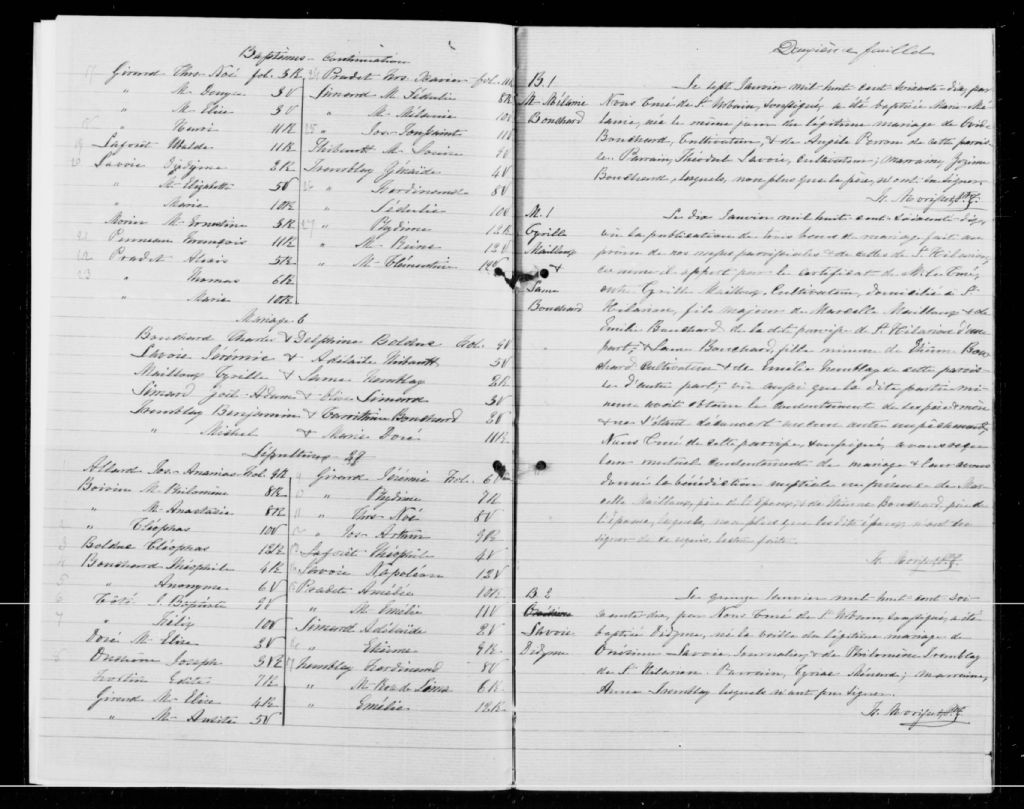 Baptêmes - Continuation
17 Girard Ths. Noé fol. 3R
" M. 3V
" M. Elise 3V
18 " Henri 11R
19 Laforêt Malde 11R
20 Savoie Didyme 2R
" M. Elizabeth 5V
" Marie 10R
Morin M. Ernestine 3R
21 Perron François 11R
22 Pradet Alais 5R
23 " Thomas 6R
" Marie 10R
24 Pradet Frs. Xavier fol. 11R
Simard M. Sédulie 8R
" M. Mélanie 10V
25 " Jos. Toussaint 11V
Thibeault M. Louise 9V
Tremblay Génaïde 4V
26 " Ferdinand 8V
" Sédulie 10V
27 " Elydime 12R
" M. Reine 12V
" M. Clémentine 12V
Mariage 6
Bouchard Charles & Delphine Bolduc fol. 9V
Savoie Jérémie & Adélaïde Thibeault 5V
Mailloux Cyrille & Tremblay 2R
Simard Joie Adam & Elise Simard 3V
Tremblay Benjamin & Bouchard 2V
" Michel & Marie Doré 11R
Sépultures 28
Allard Jos. Ananias fol. 9R
Boivin M. Philomène 8R
" M. Anastasie 8R
" Cléophas 10V
Bolduc Cléophas 12R
Bouchard Théophile 4R
" Anonyme 6V
Côté J. Baptiste 9V
" Félix 10V
Doré M. Elise 2V
Joseph 5V
Fortin Edite 7R
Girard M. Elise 4R
" M. 5V
Girard Jérémie fol. 6V
" Elydime 7R
" Ths. Noé 8V
" Jos. Arthur 9R
Laforêt Théophile 4V
Savoie Napoléon 12V
Pradet Amélie 10R
" M. Emélie 11V
Simard Adélaïde 2V
" Etienne 9R
Tremblay Ferdinand 8V
" M. Rose de Lima 6R
" Emélie 12R
Deuxième feuillet
B. 1
M. Mélanie
Bouchard
Le sept Janvier mil huit cent soixante dix, par
Nous Curé de St. Urbain, soussigné, a été baptisée Marie Mé-
lanie, née le même jour du légitime mariage de Ovide
Bouchard, Cultivateur, & de Angèle Perron de cette parois-
se. Parrain, Théodule Savoie, cultivateur; marraine, Jozime
Bouchard, lesquels, non plus que le père, n'ont su signer.
M. 1
Cyrille
Mailloux
&
Bouchard
Le dix Janvier mil huit cent soixante dix,
vu la publication de trois bans de mariage fait au
prône de nos messes paroissiales & de celles de St. Hilarion,
comme il appert par le certificat de M. le Curé,
entre Cyrille Mailloux, Cultivateur, domicilié à St.
Hilarion, fils majeur de Marcelle Mailloux & de
Emilie Bouchard de la dite paroisse de St. Hilarion d'une
part; & Bouchard, fille mineure de Bou-
chard Cultivateur & de Emélie Tremblay de cette parois-
se d'autre part; vu aussi que la dite partie mi-
neure avait obtenu le consentement de ses père & mère
& ne s'étant découvert aucun autre empêchement,
Nous Curé de cette paroisse, soussigné, avons reçu
leur mutuel consentement de mariage & leur avons
donné la bénédiction nuptiale en présence de Mar-
celle Mailloux, père de l'époux, & de Bouchard, père de
l'épouse, lesquels, non plus que les dits époux, n'ont su
signer de ce requis, lecture faite.
B. 2
Savoie
Didyme
Le quinze Janvier mil huit cent soi-
xante dix, par Nous Curé de St. Urbain, soussigné, a été
baptisé Didyme, né la veille du légitime mariage de
Onésime Savoie Journalier, & de Philomène Tremblay
de St. Hilarion. Parrain, Cyriac Ménard; marraine,
Anna Tremblay lesquels n'ont pu signer.